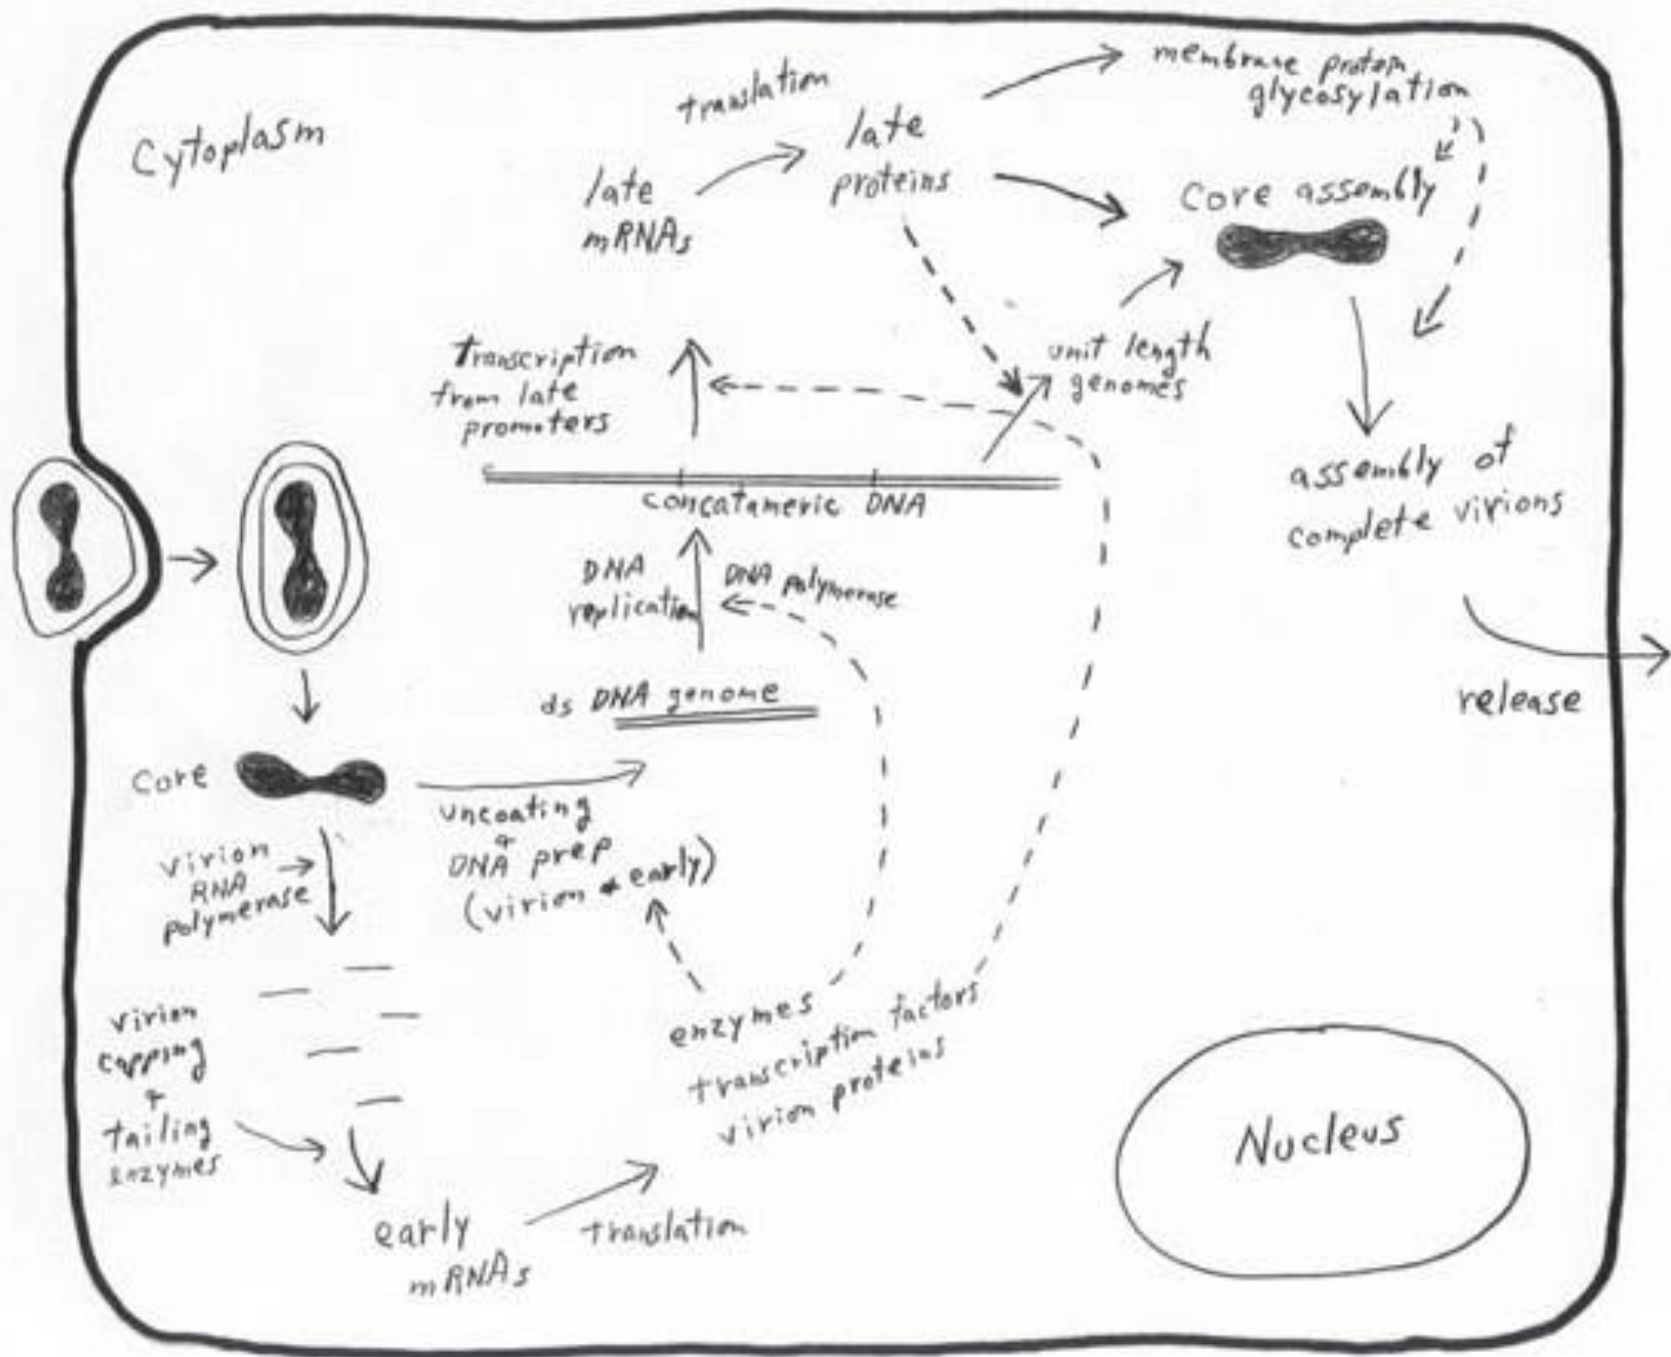 Cytoplasm
translation
late
mRNAs
late
proteins
membrane protein
glycosylation
Core assembly
Transcription
from late
promoters
unit length
genomes
concatameric DNA
assembly of
complete virions
release
DNA
replication
DNA polymerase
ds DNA genome
Core
uncoating
+
DNA prep
(virion + early)
virion
RNA
polymerase
virion
capping
+
tailing
enzymes
early
mRNAs
translation
enzymes
transcription factors
virion proteins
Nucleus